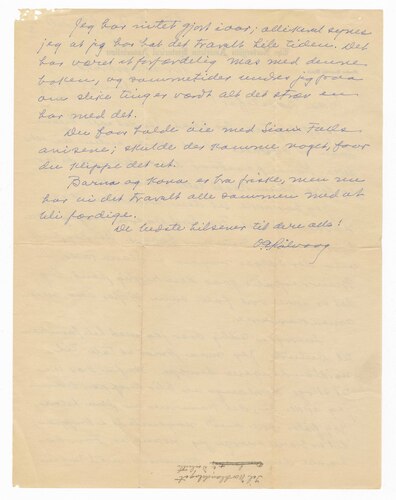 Jeg har intet gjort ivaar; allikevel synes
jeg at jeg har hat det travelt hele tiden. Det
har været et forfærdelig mas med denne
boken, og sommetider undres jeg paa
om slike ting er værdt alt det stræv en
har med det.
Du faar holde øie med Sioux Falls
avisene; skulde der komme noget, faar
du klippe det ut.
Barna og kona er bra friske, men nu
har vi det travelt alle sammen med at
bli færdige.
De bedste hilsener til dere alle!
O E Rölvaag